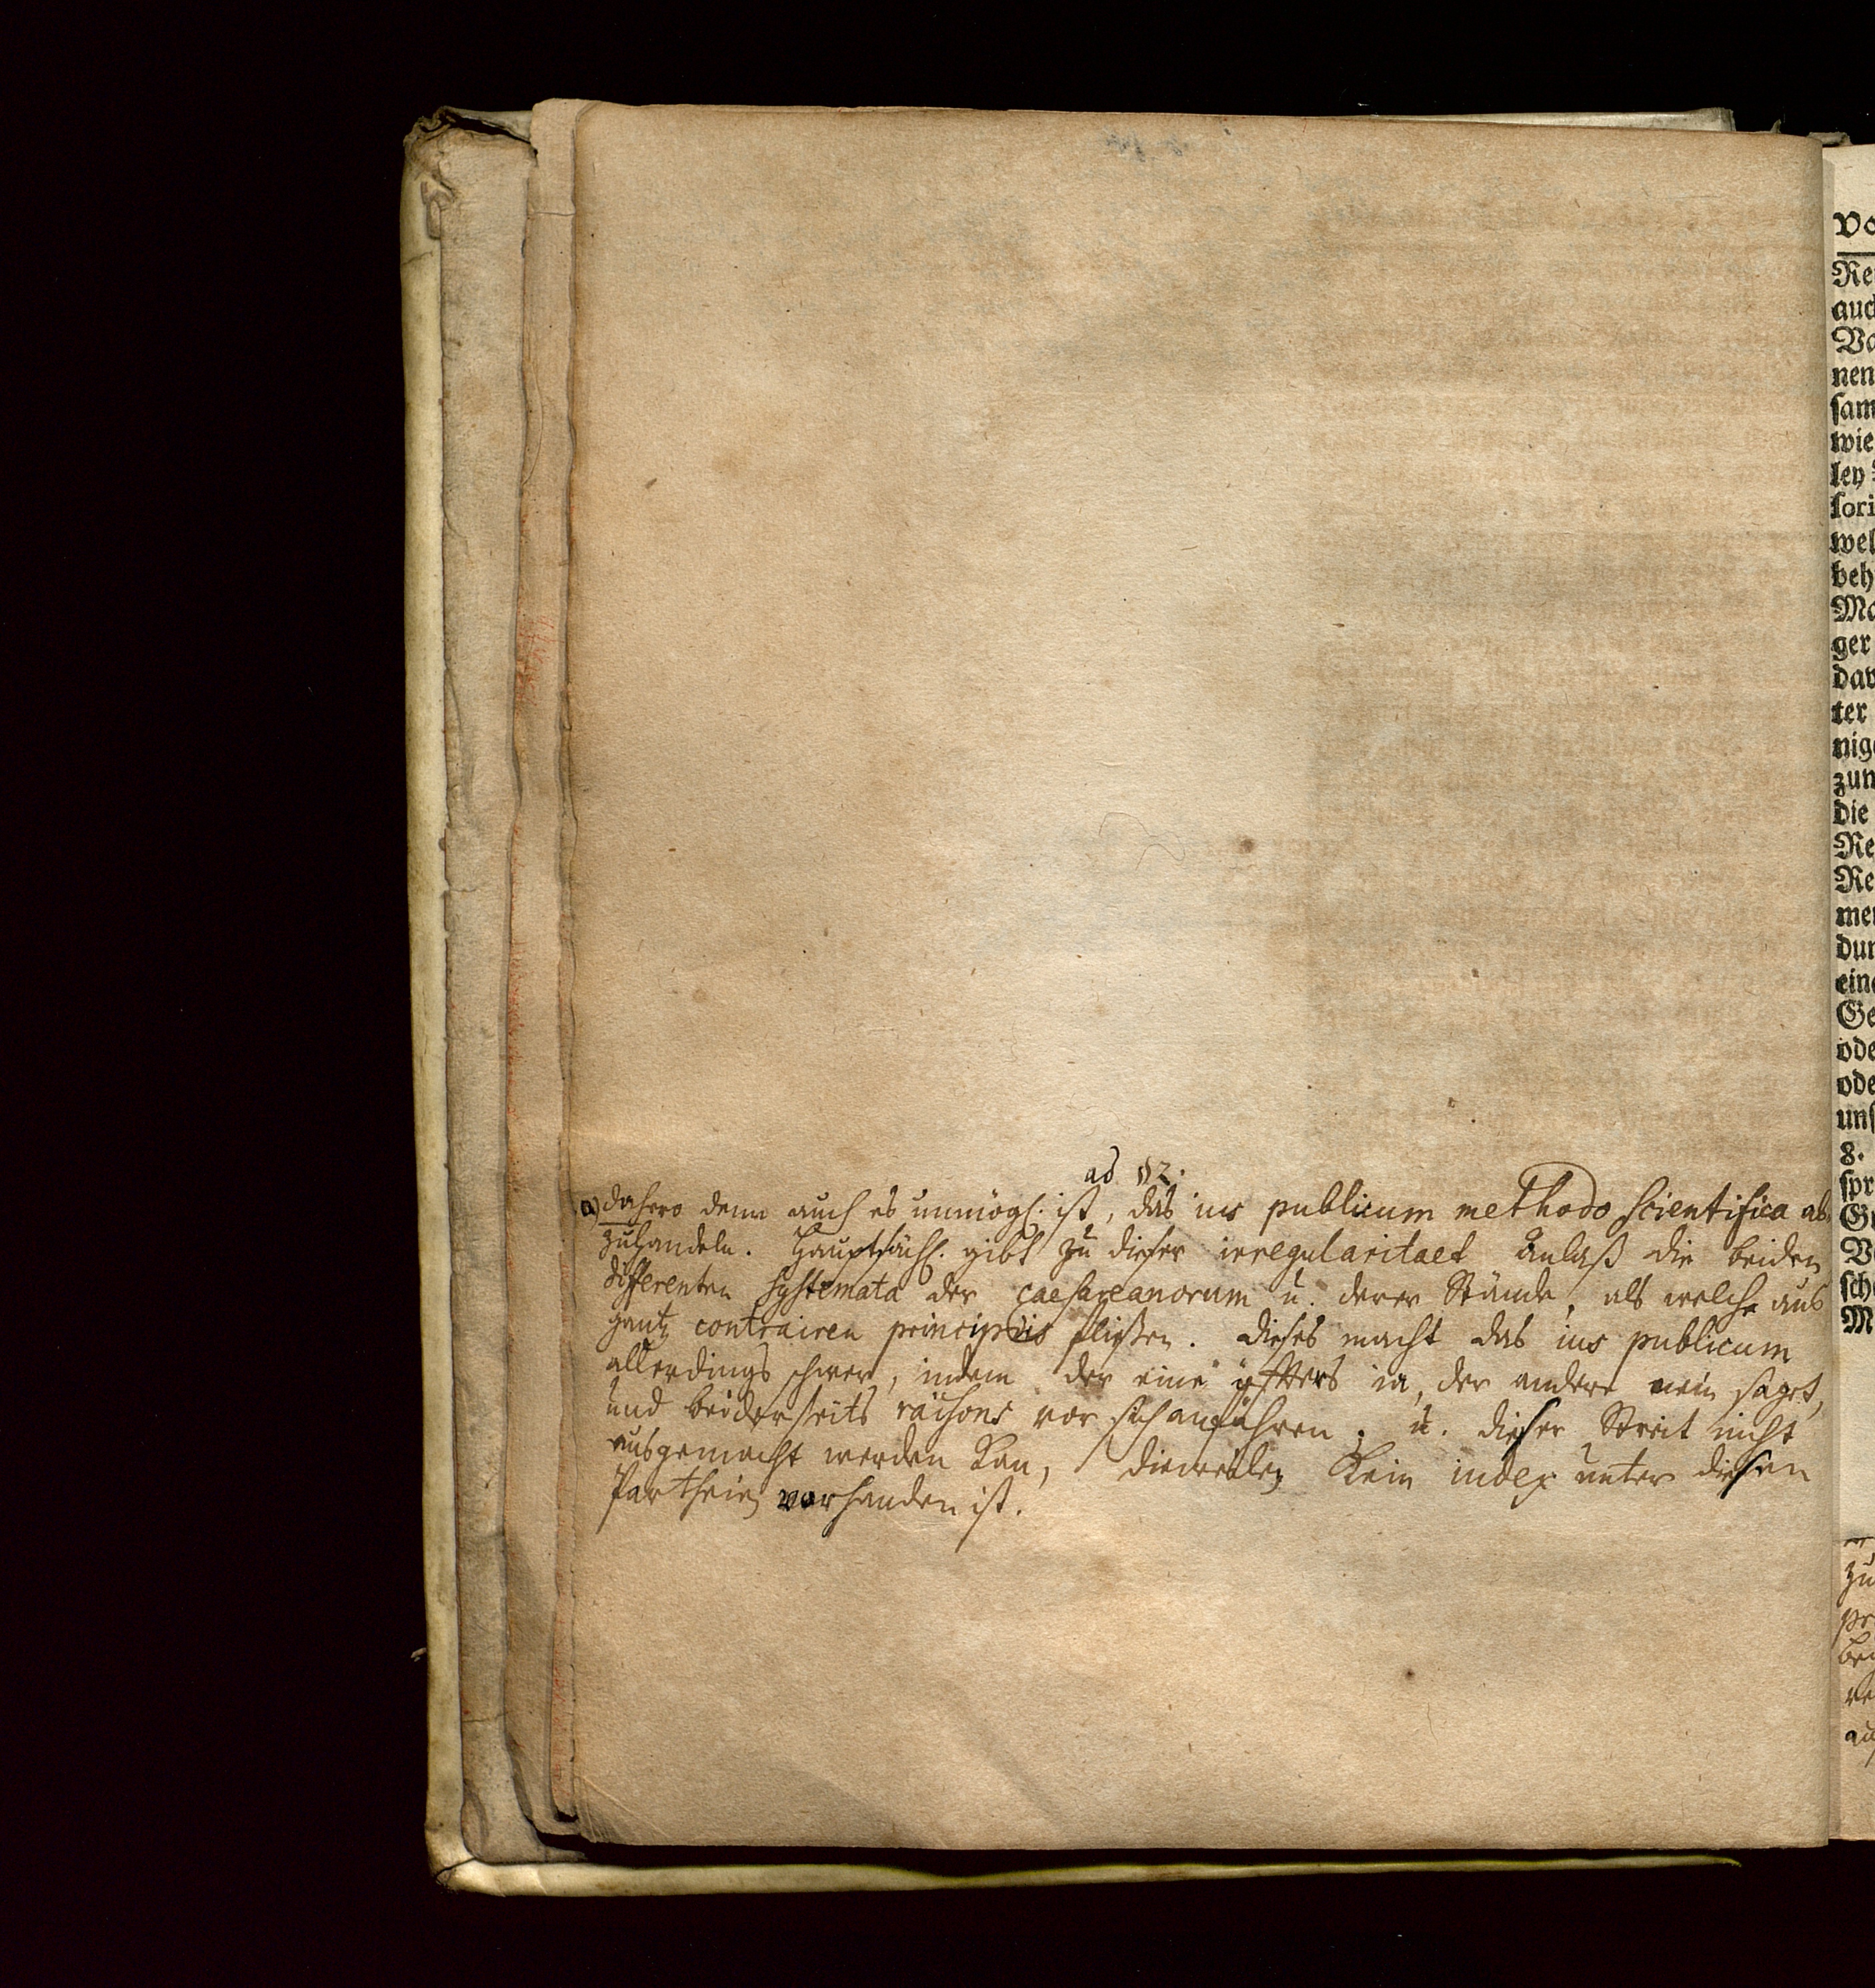 ad §2.
a) dahero denn auch es unmögl. ist, das ius publicum methodo scientifica ab
zuhandeln. Hauptsächl. gibt zu dieser irregularitaet Anlaß die beiden
differenten Systemata der caesareanorum u. derer Stände, als welche aus
gantz contrairen principiis fließen. dieses macht das ius publicum
allerdings schwer, indem der eine öffters ia, der andere nein saget,
und beiderseits raisons vor sich anführen, u. dieser Streit nicht
ausgemacht werden kan, dieweilen kein iudex unter diesen
Partheien vorhanden ist.
Vo
Re
auc
Va
nen
sam
wie
ley
sori
wel
beh
Ma
ger
dav
ter
nig
zum
die
Re
Re
mer
dur
ein
Ge
ode
ode
uns
8.
spr
V
sch
M
zu
pr
be
re